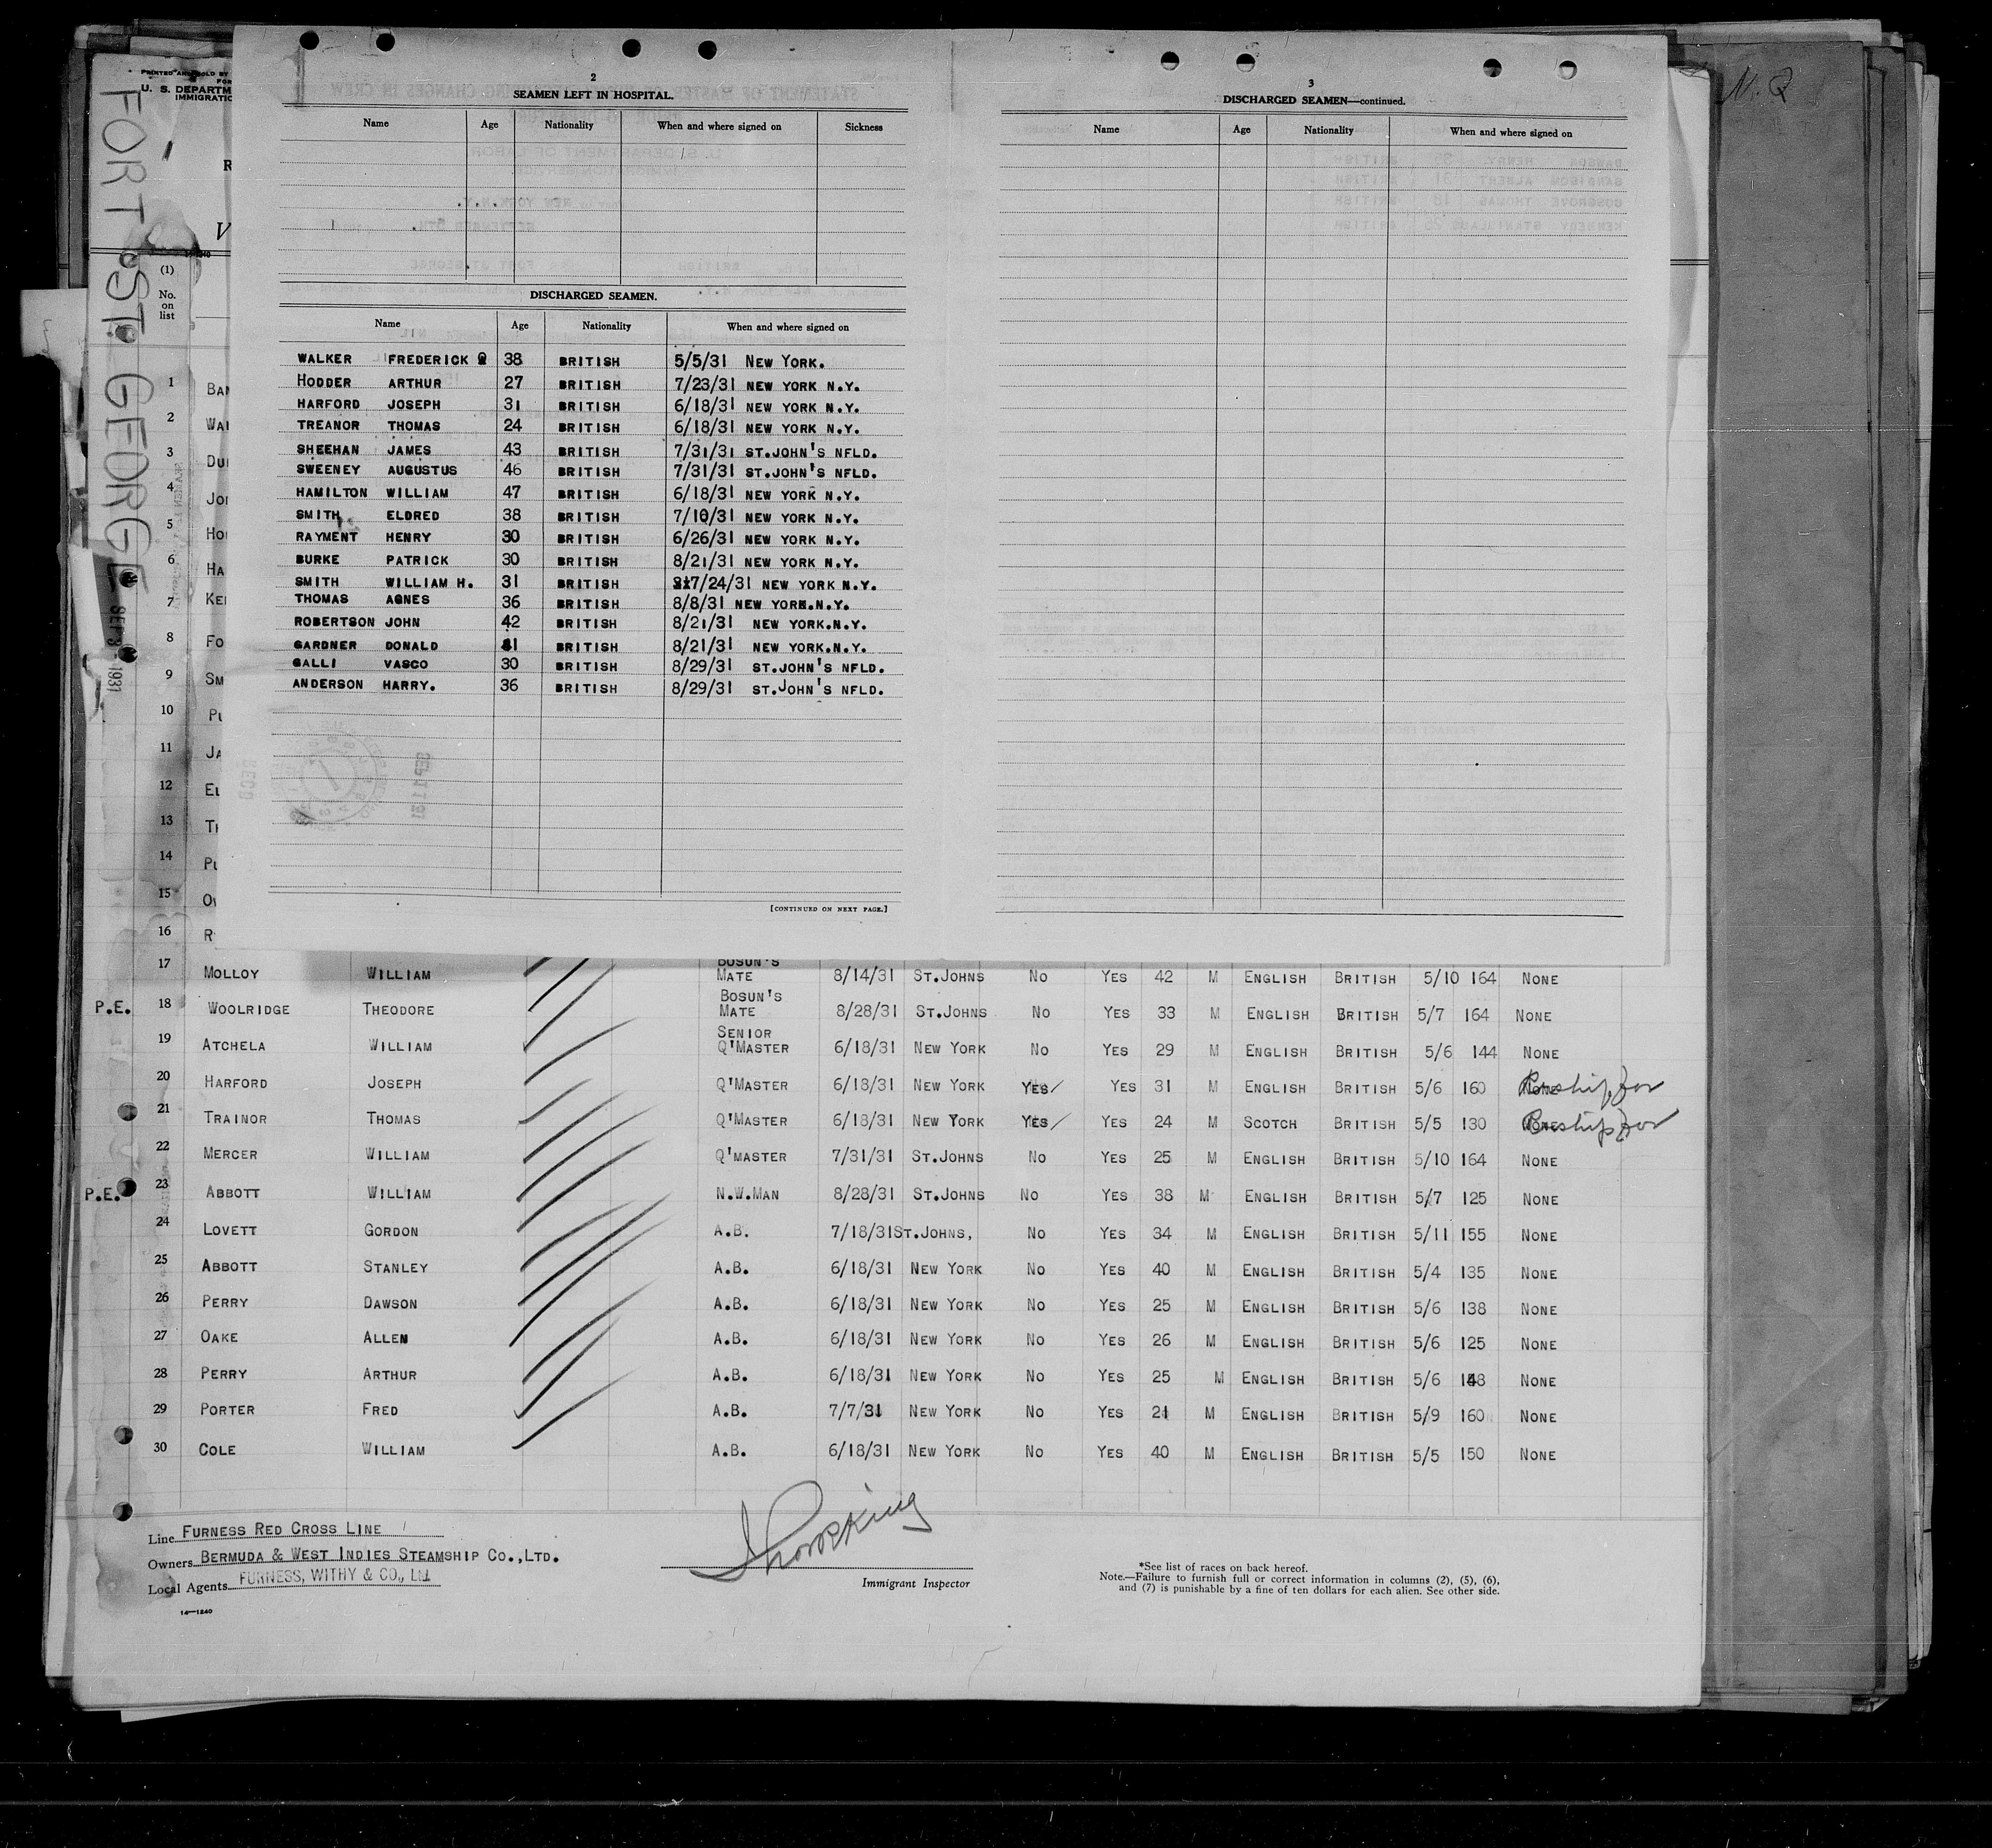 PRINTED AND SOLD BY
U. S. DEPARTM
IMMIGRATIO
FORT ST. GEORGE
SEP 3 1931
(1)
No.
on
list
2
SEAMEN LEFT IN HOSPITAL.
Name Age Nationality When and where signed on Sickness
DISCHARGED SEAMEN.
Name Age Nationality When and where signed on
WALKER FREDERICK 38 BRITISH 5/5/31 NEW YORK.
HODDER ARTHUR 27 BRITISH 7/23/31 NEW YORK N.Y.
HARFORD JOSEPH 31 BRITISH 6/18/31 NEW YORK N.Y.
TREANOR THOMAS 24 BRITISH 6/18/31 NEW YORK N.Y.
SHEEHAN JAMES 43 BRITISH 7/31/31 ST.JOHN'S NFLD.
SWEENEY AUGUSTUS 46 BRITISH 7/31/31 ST.JOHN'S NFLD.
HAMILTON WILLIAM 47 BRITISH 6/18/31 NEW YORK N.Y.
SMITH ELDRED 38 BRITISH 7/10/31 NEW YORK N.Y.
RAYMENT HENRY 30 BRITISH 6/26/31 NEW YORK N.Y.
BURKE PATRICK 30 BRITISH 8/21/31 NEW YORK N.Y.
SMITH WILLIAM H. 31 BRITISH 7/24/31 NEW YORK N.Y.
THOMAS AGNES 36 BRITISH 8/8/31 NEW YORK.N.Y.
ROBERTSON JOHN 42 BRITISH 8/21/31 NEW YORK.N.Y.
GARDNER DONALD 41 BRITISH 8/21/31 NEW YORK.N.Y.
GALLI VASCO 30 BRITISH 8/29/31 ST.JOHN'S NFLD.
ANDERSON HARRY. 36 BRITISH 8/29/31 ST.JOHN'S NFLD.
[CONTINUED ON NEXT PAGE.]
3
DISCHARGED SEAMEN—continued.
Name Age Nationality When and where signed on
N. Q
1 BAN
2 WAL
3 DUN
4 JON
5 HO
6 HA
7 KEN
8 FO
9 SM
10 PU
11 JA
12 EL
13 TH
14 PU
15 OW
16 R
17 MOLLOY WILLIAM BOSUN'S MATE 8/14/31 ST.JOHNS NO YES 42 M ENGLISH BRITISH 5/10 164 NONE
P.E. 18 WOOLRIDGE THEODORE BOSUN'S MATE 8/28/31 ST.JOHNS NO YES 33 M ENGLISH BRITISH 5/7 164 NONE
19 ATCHELA WILLIAM SENIOR Q'MASTER 6/18/31 NEW YORK NO YES 29 M ENGLISH BRITISH 5/6 144 NONE
20 HARFORD JOSEPH Q'MASTER 6/18/31 NEW YORK YES YES 31 M ENGLISH BRITISH 5/6 160
21 TRAINOR THOMAS Q'MASTER 6/18/31 NEW YORK YES YES 24 M SCOTCH BRITISH 5/5 130
22 MERCER WILLIAM Q'MASTER 7/31/31 ST.JOHNS NO YES 25 M ENGLISH BRITISH 5/10 164 NONE
P.E. 23 ABBOTT WILLIAM N.W.MAN 8/28/31 ST.JOHNS NO YES 38 M ENGLISH BRITISH 5/7 125 NONE
24 LOVETT GORDON A.B. 7/18/31 ST.JOHNS, NO YES 34 M ENGLISH BRITISH 5/11 155 NONE
25 ABBOTT STANLEY A.B. 6/18/31 NEW YORK NO YES 40 M ENGLISH BRITISH 5/4 135 NONE
26 PERRY DAWSON A.B. 6/18/31 NEW YORK NO YES 25 M ENGLISH BRITISH 5/6 138 NONE
27 OAKE ALLEN A.B. 6/18/31 NEW YORK NO YES 26 M ENGLISH BRITISH 5/6 125 NONE
28 PERRY ARTHUR A.B. 6/18/31 NEW YORK NO YES 25 M ENGLISH BRITISH 5/6 148 NONE
29 PORTER FRED A.B. 7/7/31 NEW YORK NO YES 21 M ENGLISH BRITISH 5/9 160 NONE
30 COLE WILLIAM A.B. 6/18/31 NEW YORK NO YES 40 M ENGLISH BRITISH 5/5 150 NONE
Line FURNESS RED CROSS LINE
Owners BERMUDA & WEST INDIES STEAMSHIP CO.,LTD.
Local Agents FURNESS, WITHY & CO., LTD.
14—1240
Immigrant Inspector
*See list of races on back hereof.
Note.—Failure to furnish full or correct information in columns (2), (5), (6),
and (7) is punishable by a fine of ten dollars for each alien. See other side.